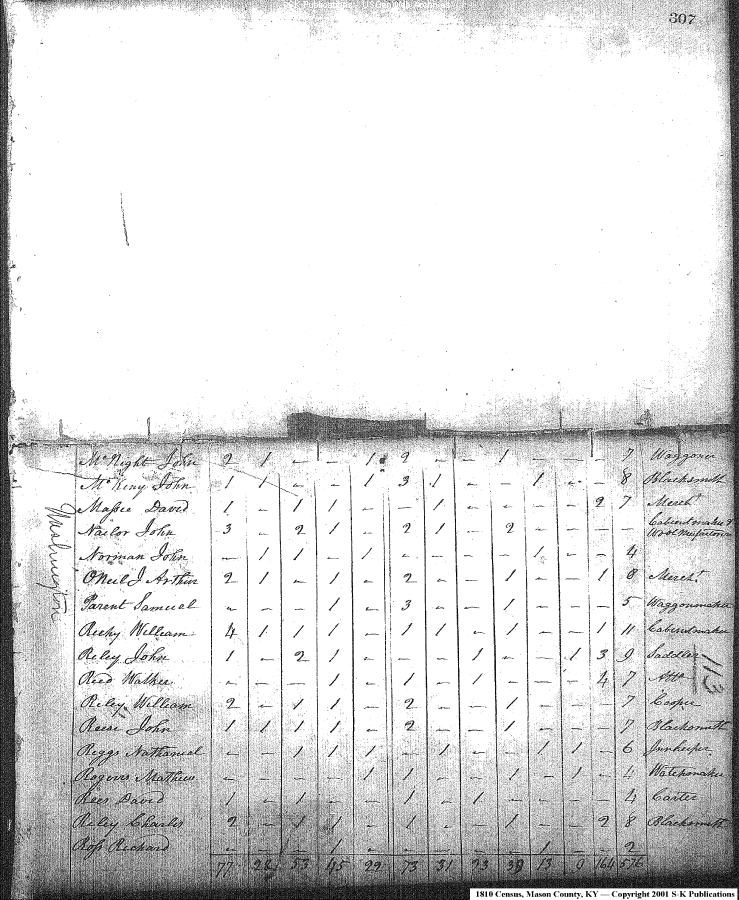 307
McNight John 2 1 - - 1 2 - - 1 - - - 7 Waggoner
McKeny John 1 1 - - 1 3 1 - - 1 - - 8 Blacksmith
Massie David 1 - 1 1 - - 1 - - - - 2 7 Mercht
Nailor John 3 - 2 1 - 2 1 - 2 - - - - Cabinetmaker &
Wool
Norman John - 1 1 - 1 - - - - 1 - - 4
ONeil J Arthur 2 1 - 1 - 2 - - 1 - - 1 8 Mercht
Parent Samuel - - - 1 - 3 - - 1 - - - 5 Waggonmaker
William 4 1 1 1 - 1 1 - 1 - - 1 11 Cabinetmaker
Riley John 1 - 2 1 - - - 1 - - 1 3 9 Saddler
Reed Walker - - - 1 - 1 - 1 - - - 4 7
Riley William 2 - 1 1 - 2 - - 1 - - - 7 Cooper
Reese John 1 1 1 1 - 2 - - 1 - - - 7 Blacksmith
Riggs Nathaniel - - 1 1 1 - 1 - - 1 1 - 6 Innkeeper
Rogers Mathew - - - - 1 1 - - 1 - 1 - 4 Watchmaker
Rees David 1 - 1 - - 1 - 1 - - - - 4 Carter
Riley Charles 2 - 1 1 - 1 - - 1 - - 2 8 Blacksmith
Ross Richard - - - 1 - - - - - 1 - - 2
77 28 53 45 29 73 31 23 39 13 9 164 576
Washington
113
1810 Census, Mason County, KY — Copyright 2001 S-K Publications